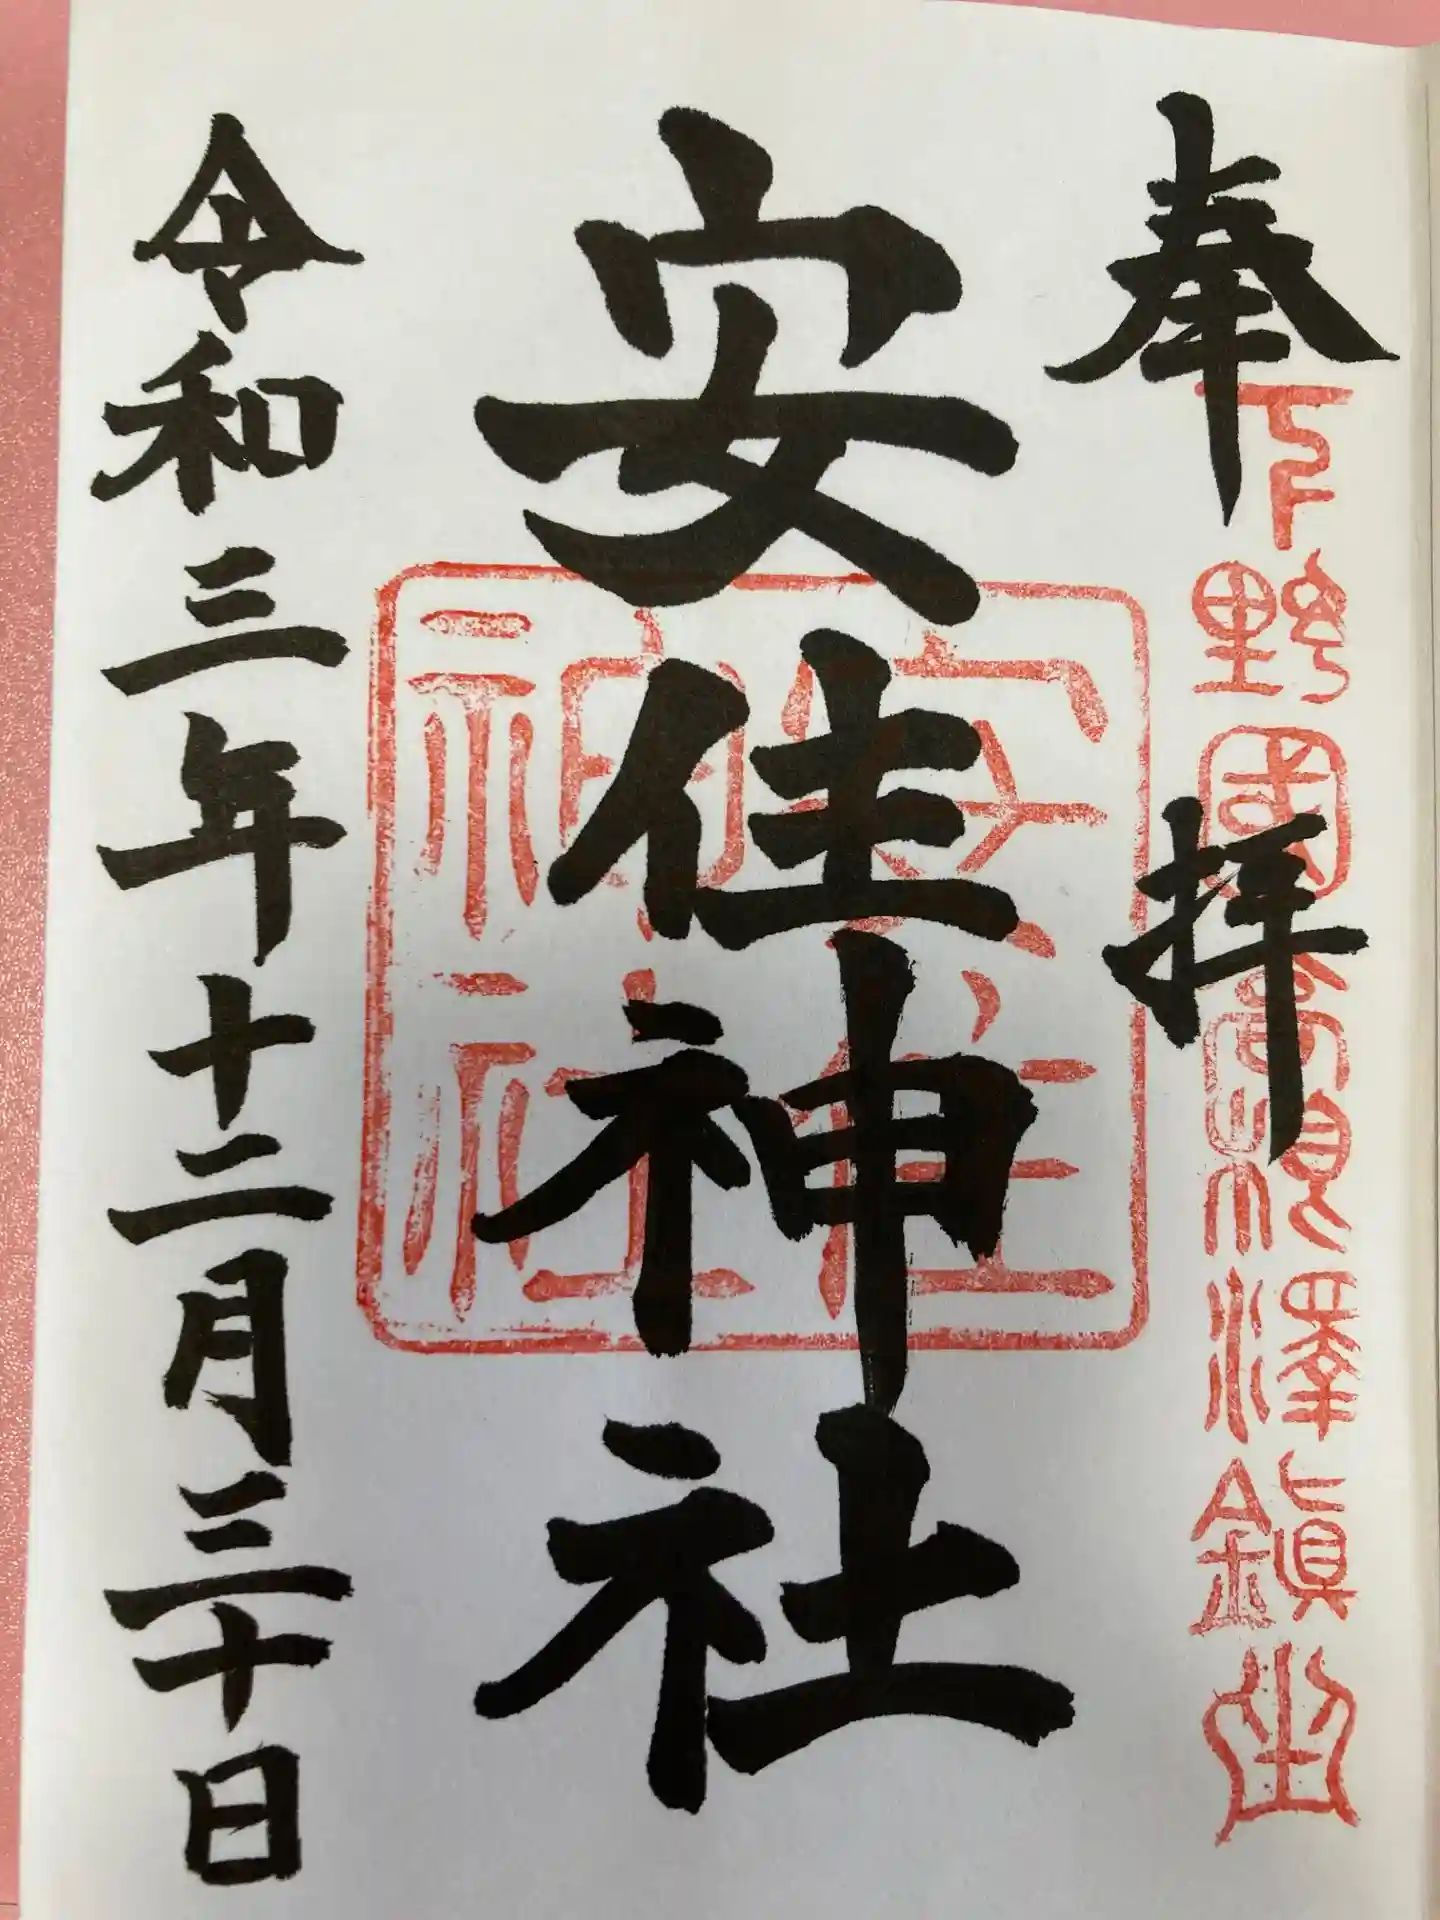 奉拝
下野國高根澤鎮座
安住神社
安住
神社
令和三年十二月三十日